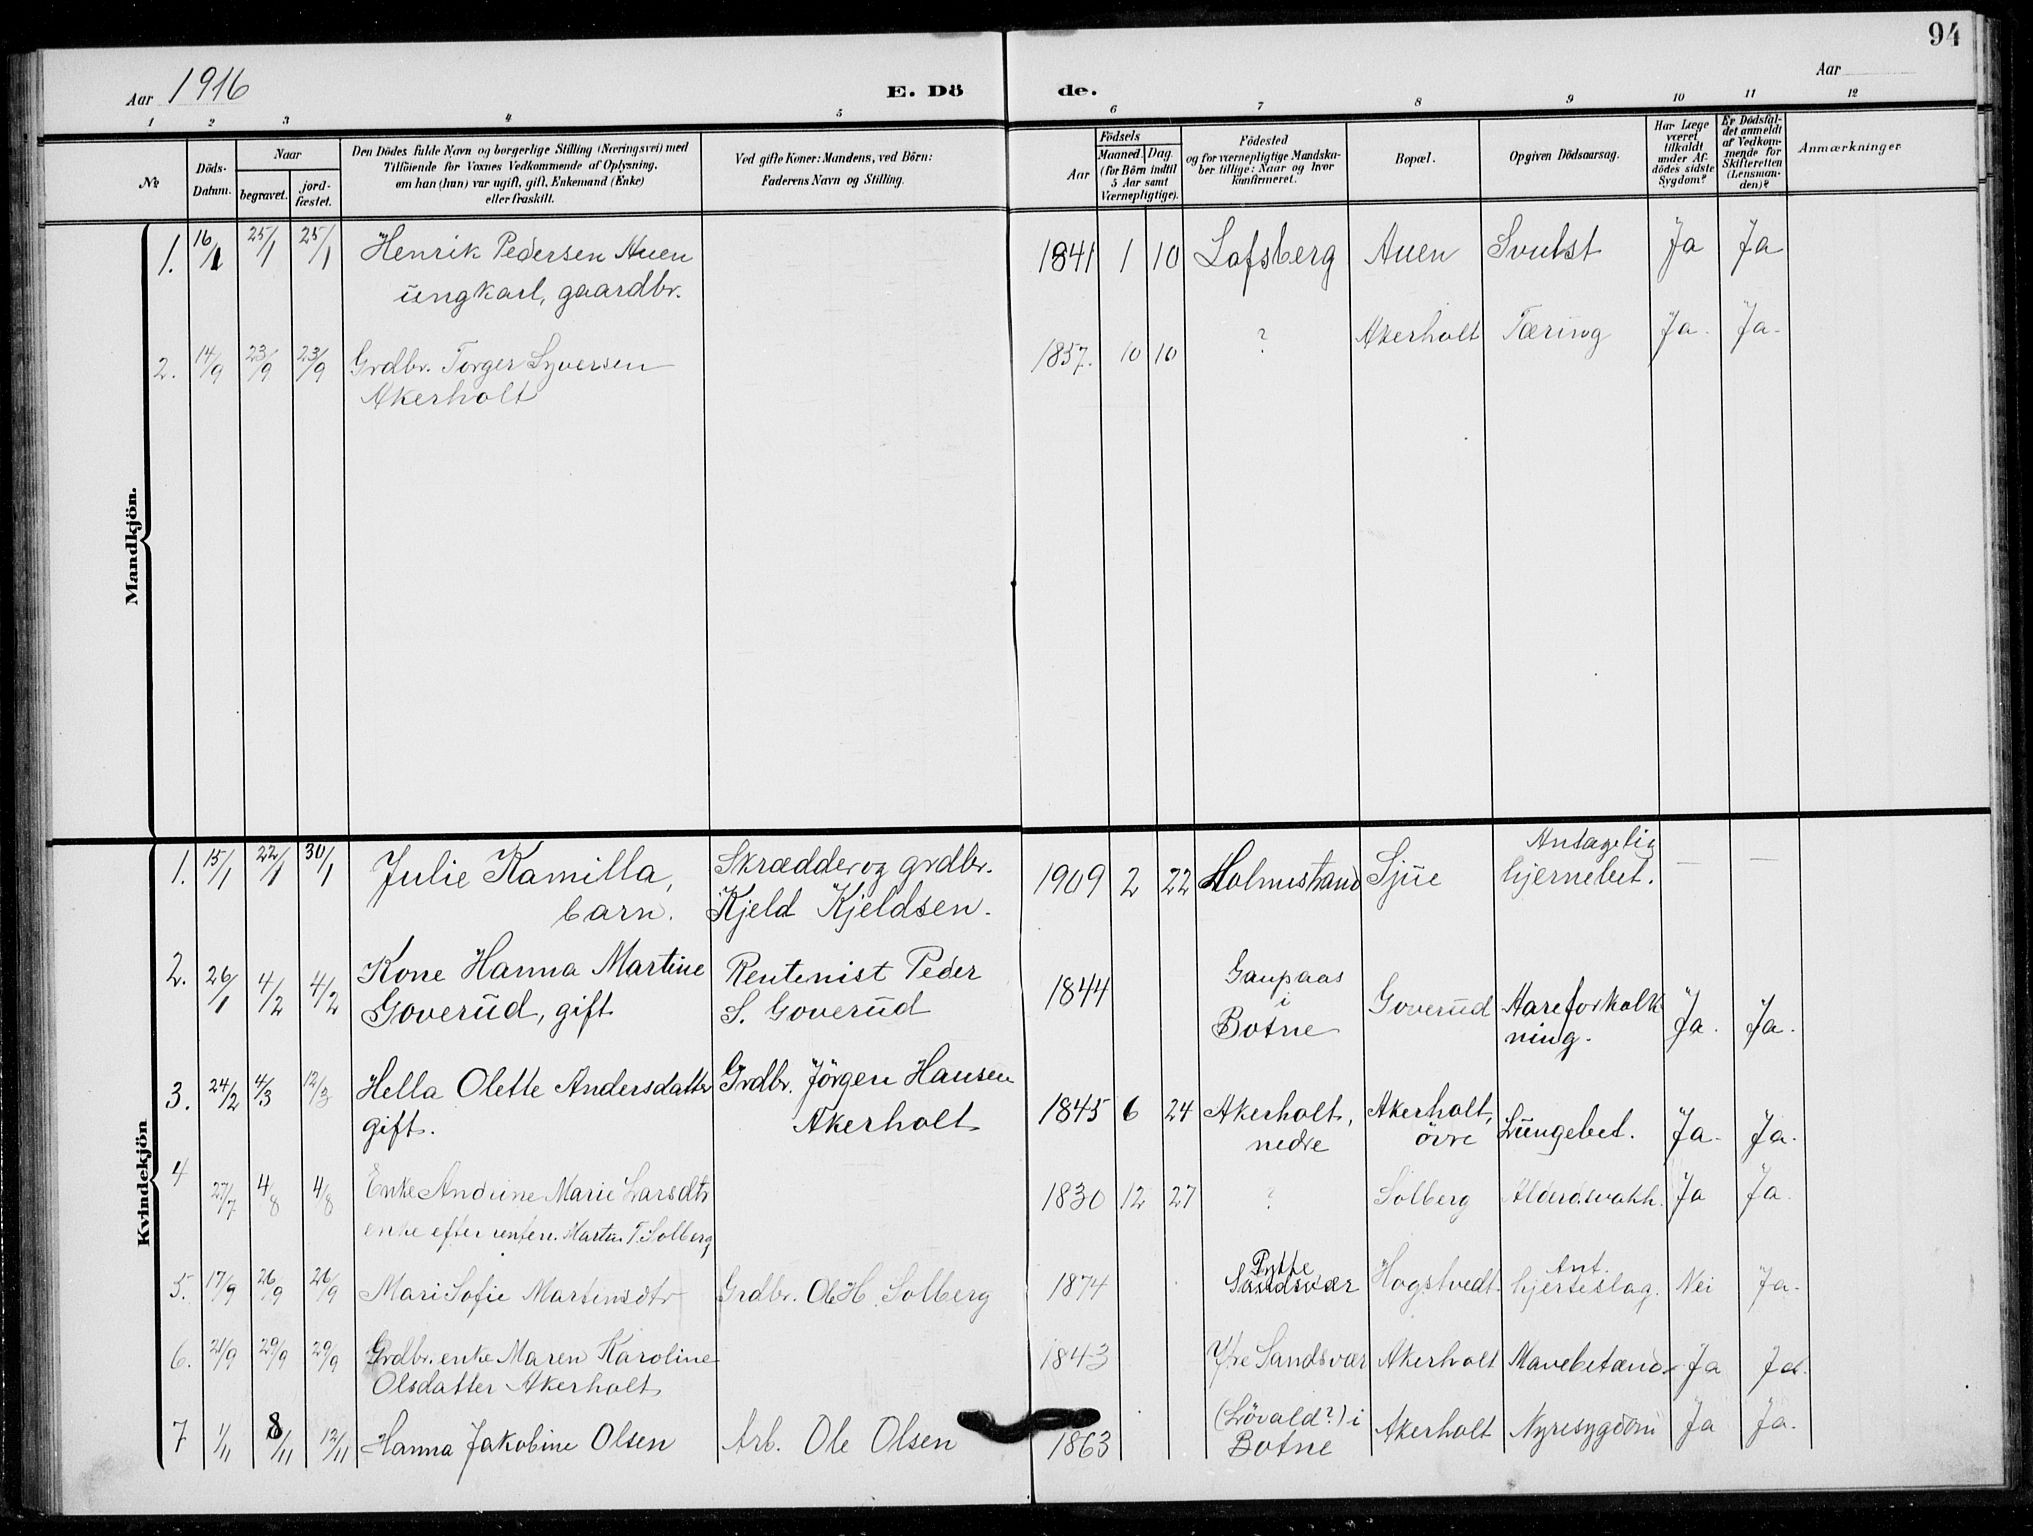 94
Aar 1916
E. Dö
de.
Aar
1 2 3 4 5 6 7 8 9 10 11 12
№
Döds-
Datum.
Naar
begravet.
jord-
fæstet.
Den Dödes fulde Navn og borgerlige Stilling (Næringsvei) med
Tilföiende for Voxnes Vedkommende af Oplysning,
om han (hun) var ugift, gift, Enkemand (Enke)
eller fraskilt.
Ved gifte Koner: Mandens, ved Börn:
Faderens Navn og Stilling.
Födsels
Aar
Maaned. Dag.
(for Börn indtil
5 Aar samt
Værnepligtige).
Födested
og for værnepligtige Mandska-
ber tillige: Naar og hvor
konfirmeret.
Bopæl.
Opgiven Dödsaarsag.
Har Læge
været
tilkaldt
under Af-
dödes sidste
Sygdom?
Er Dödsfal-
det anmeldt
af Vedkom-
mende for
Skifteretten
(Lensman-
den)?
Anmærkninger
Mandkjön.
1. 16/1 25/1 25/1 Henrik Pedersen Auen 1841 1 10 Lofsberg Auen Svulst Ja Ja
ungkarl, gaardbr.
2. 14/9 23/9 23/9 Grdbr. Torger Syversen 1857. 10 10 ? Akerholt Tæring Ja. Ja.
Akerholt
Kvindekjön
1. 15/1 22/1 30/1 Julie Kamilla, Skrædder og grdbr. 1909 2 22 Holmestrand Sjue Antagelig — —
barn. Kjeld Kjeldsen. hjernebet.
2. 26/1 4/2 4/2 Kone Hanna Martine Rentenist Peder 1844 Gaupaas Goverud Areforkalk
Goverud, gift S. Goverud i Botne ning. Ja. Ja.
3. 24/2 4/3 12/3 Hella Olette Andersdatter Grdbr. Jörgen Hansen 1845 6 24 Akerholt, Akerholt,
gift. Akerholt nedre övre Lungebet. Ja. Ja.
4 27/7 4/8 4/8 Enke Andrine Marie Larsdtr 1830 12 27 ? Solberg Alderdsvakh. Ja Ja.
enke efter renten. Martin T. Solberg
5. 17/9 26/9 26/9 Mari Sofie Martinsdtr Grdbr. Ole H. Solberg 1874 Pytte Sandsvær Hogstvedt Ant. hjerteslag. Nei Ja.
6. 21/9 29/9 29/9 Grdbr. enke Maren Karoline 1843 Ytre Sandsvær Akerholt Mavebetænd. Ja Ja.
Olsdatter Akerholt
7 1/11 8/11 12/11 Hanna Jakobine Olsen Arb. Ole Olsen 1863 (Lövald?) i Botne Akerholt Nyresygdom Ja Ja.